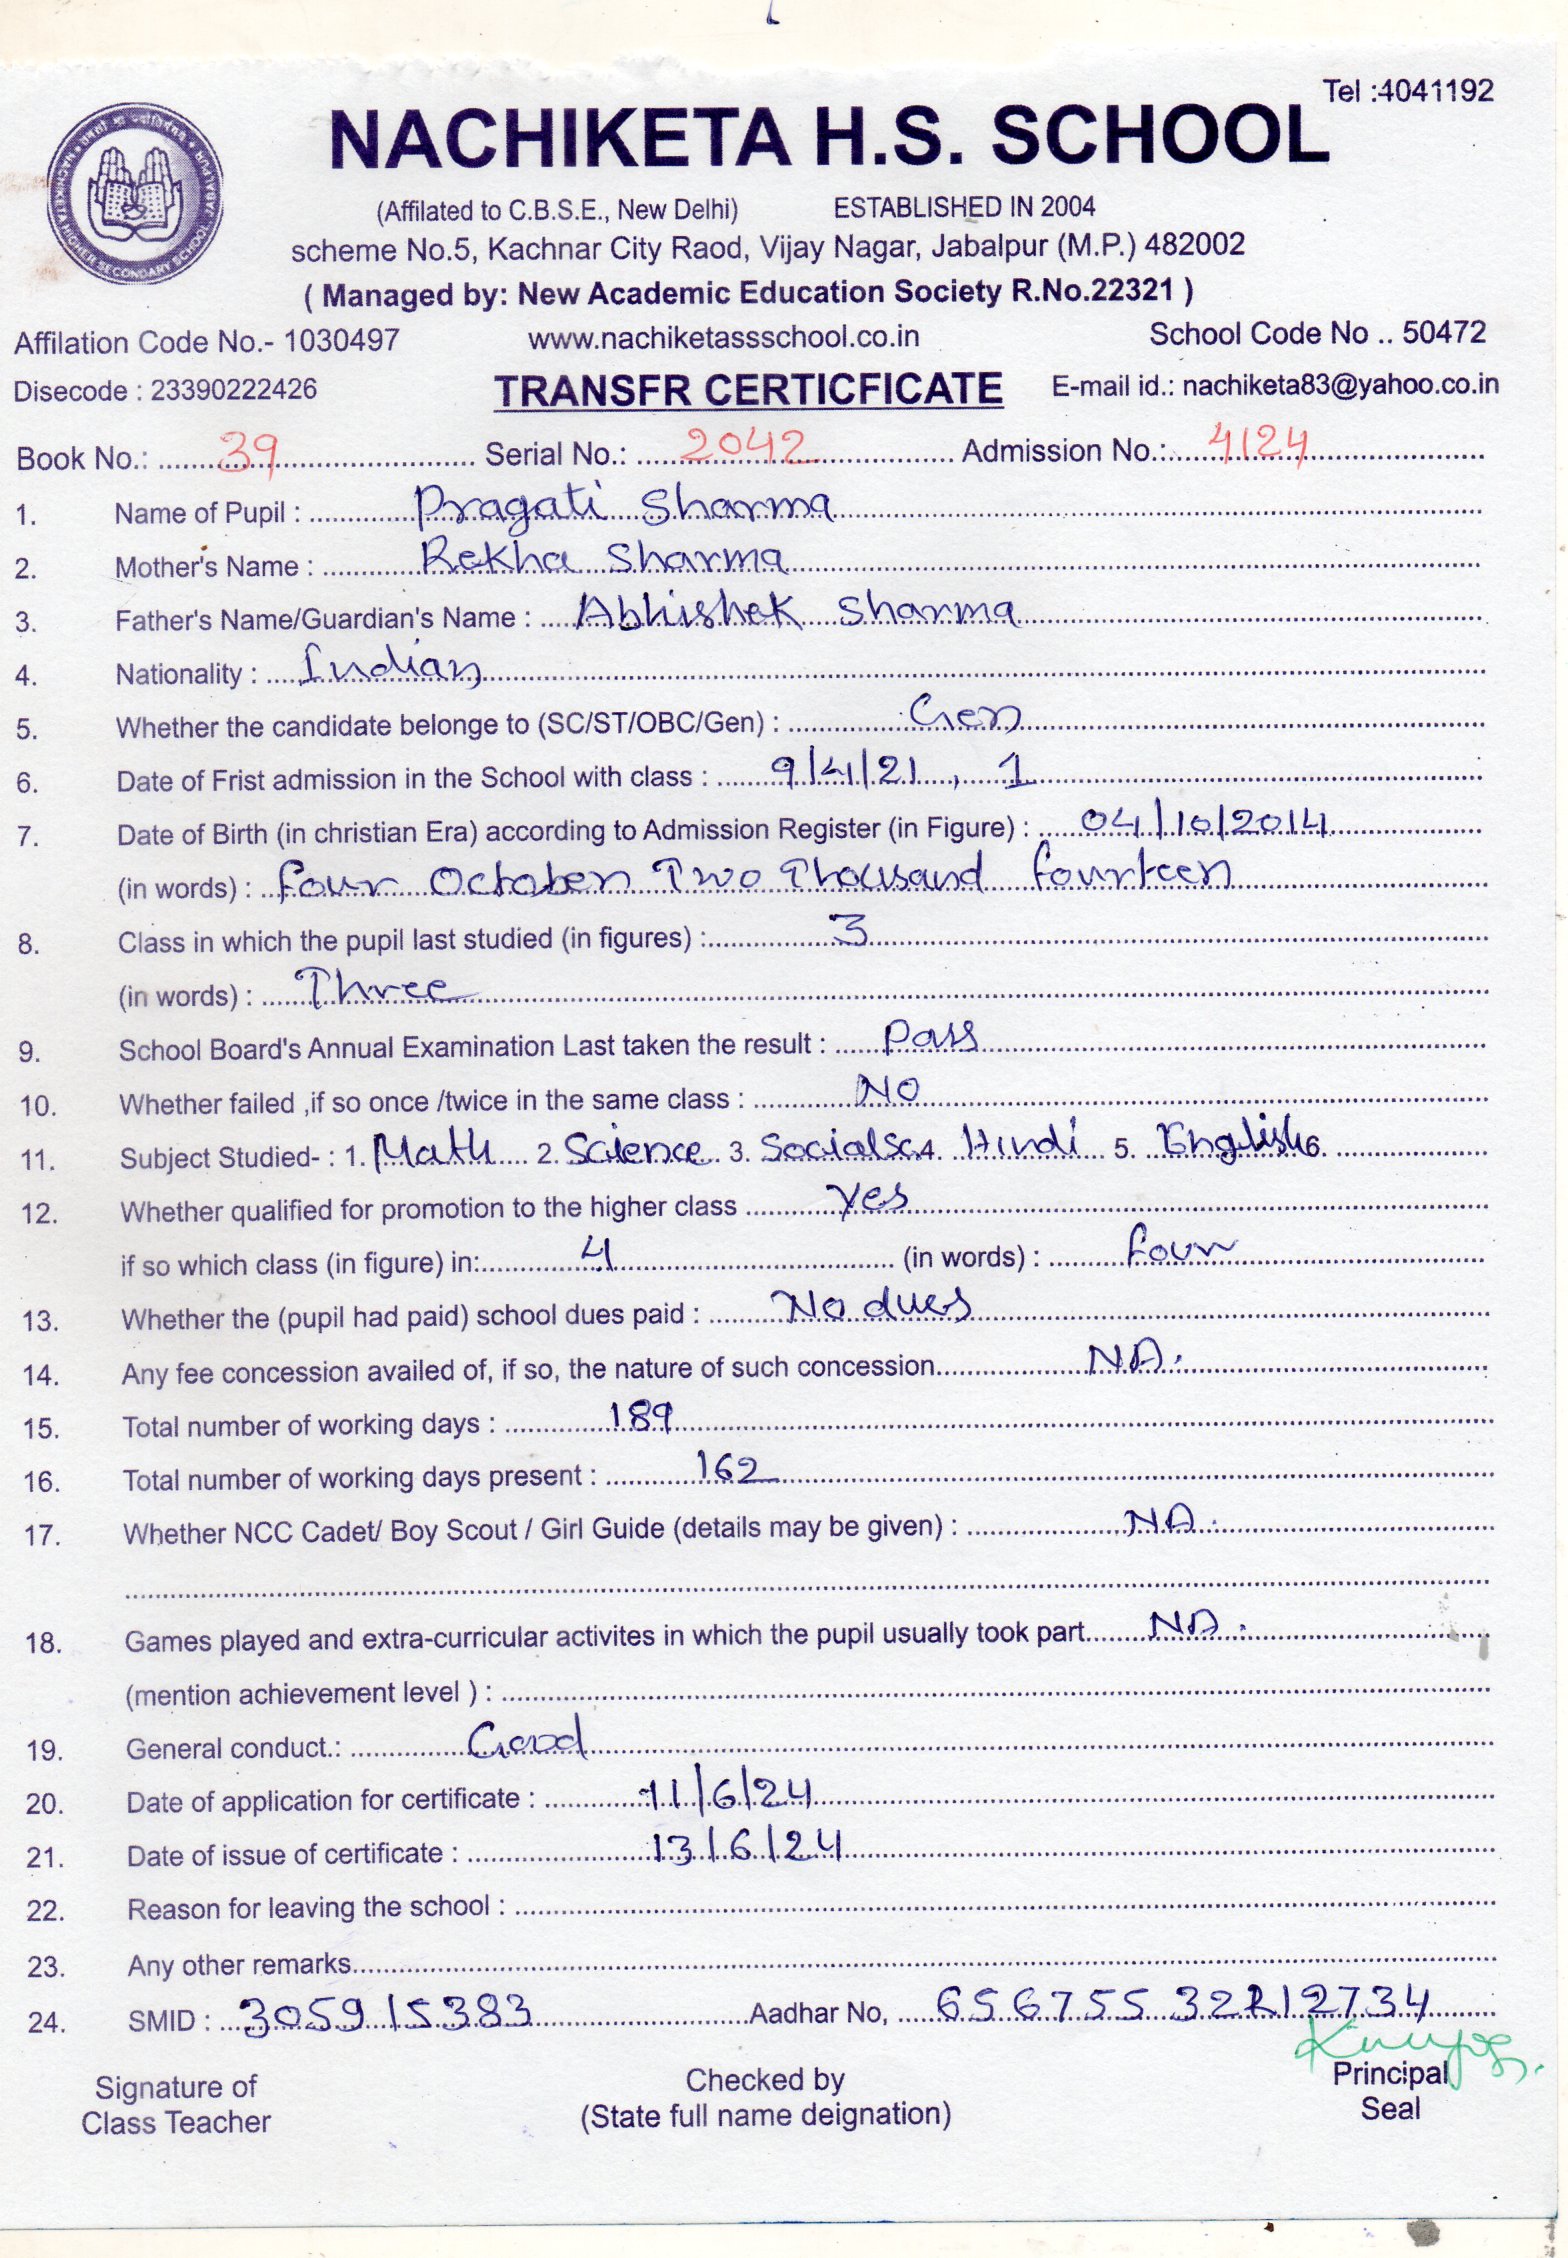 Tel :4041192
NACHIKETA H.S. SCHOOL
(Affilated to C.B.S.E., New Delhi) ESTABLISHED IN 2004
scheme No.5, Kachnar City Raod, Vijay Nagar, Jabalpur (M.P.) 482002
( Managed by: New Academic Education Society R.No.22321 )
Affilation Code No.- 1030497 www.nachiketassschool.co.in School Code No .. 50472
Disecode : 23390222426 TRANSFR CERTICFICATE E-mail id.: nachiketa83@yahoo.co.in
Book No.: 39 Serial No.: 2042 Admission No.: 4124
1. Name of Pupil : Pragati Sharma
2. Mother's Name : Rekha Sharma
3. Father's Name/Guardian's Name : Abhishek Sharma
4. Nationality : Indian
5. Whether the candidate belonge to (SC/ST/OBC/Gen) : Gen
6. Date of Frist admission in the School with class : 9/4/21, 1
7. Date of Birth (in christian Era) according to Admission Register (in Figure) : 04/10/2014
(in words) : four October Two Thousand fourteen
8. Class in which the pupil last studied (in figures) : 3
(in words) : Three
9. School Board's Annual Examination Last taken the result : Pass
10. Whether failed ,if so once /twice in the same class : NO
11. Subject Studied- : 1. Math 2. Science 3. Socialsc 4. Hindi 5. English 6.
12. Whether qualified for promotion to the higher class yes
if so which class (in figure) in: 4 (in words) : four
13. Whether the (pupil had paid) school dues paid : No dues
14. Any fee concession availed of, if so, the nature of such concession NA.
15. Total number of working days : 189
16. Total number of working days present : 162
17. Whether NCC Cadet/ Boy Scout / Girl Guide (details may be given) : NA.
18. Games played and extra-curricular activites in which the pupil usually took part NA.
(mention achievement level ) :
19. General conduct.: Good
20. Date of application for certificate : 11/6/24
21. Date of issue of certificate : 13/6/24
22. Reason for leaving the school :
23. Any other remarks
24. SMID : 305915383 Aadhar No,
Signature of Checked by Principal
Class Teacher (State full name deignation) Seal